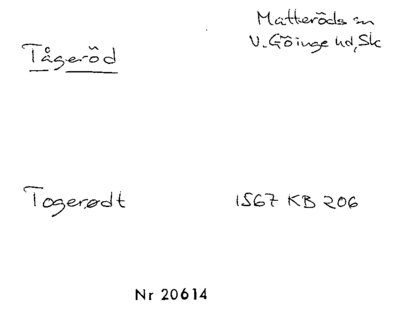 Matteröds sn
Tågeröd
V. Göinge hd, Sk
Togerødt 1567 KB 206
Nr 20614